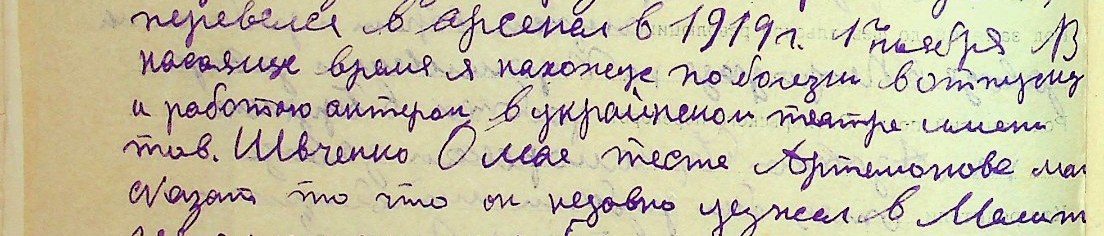 перевелся в арсенал в 1919 г. 1 ноября В
насаяще время я нахожус по болезни в отпуску
и работою актером в украинском театре имени
тов. Швченко О мае тесте Артемонове маг
сказат то что он недавно уезжал в Мелит